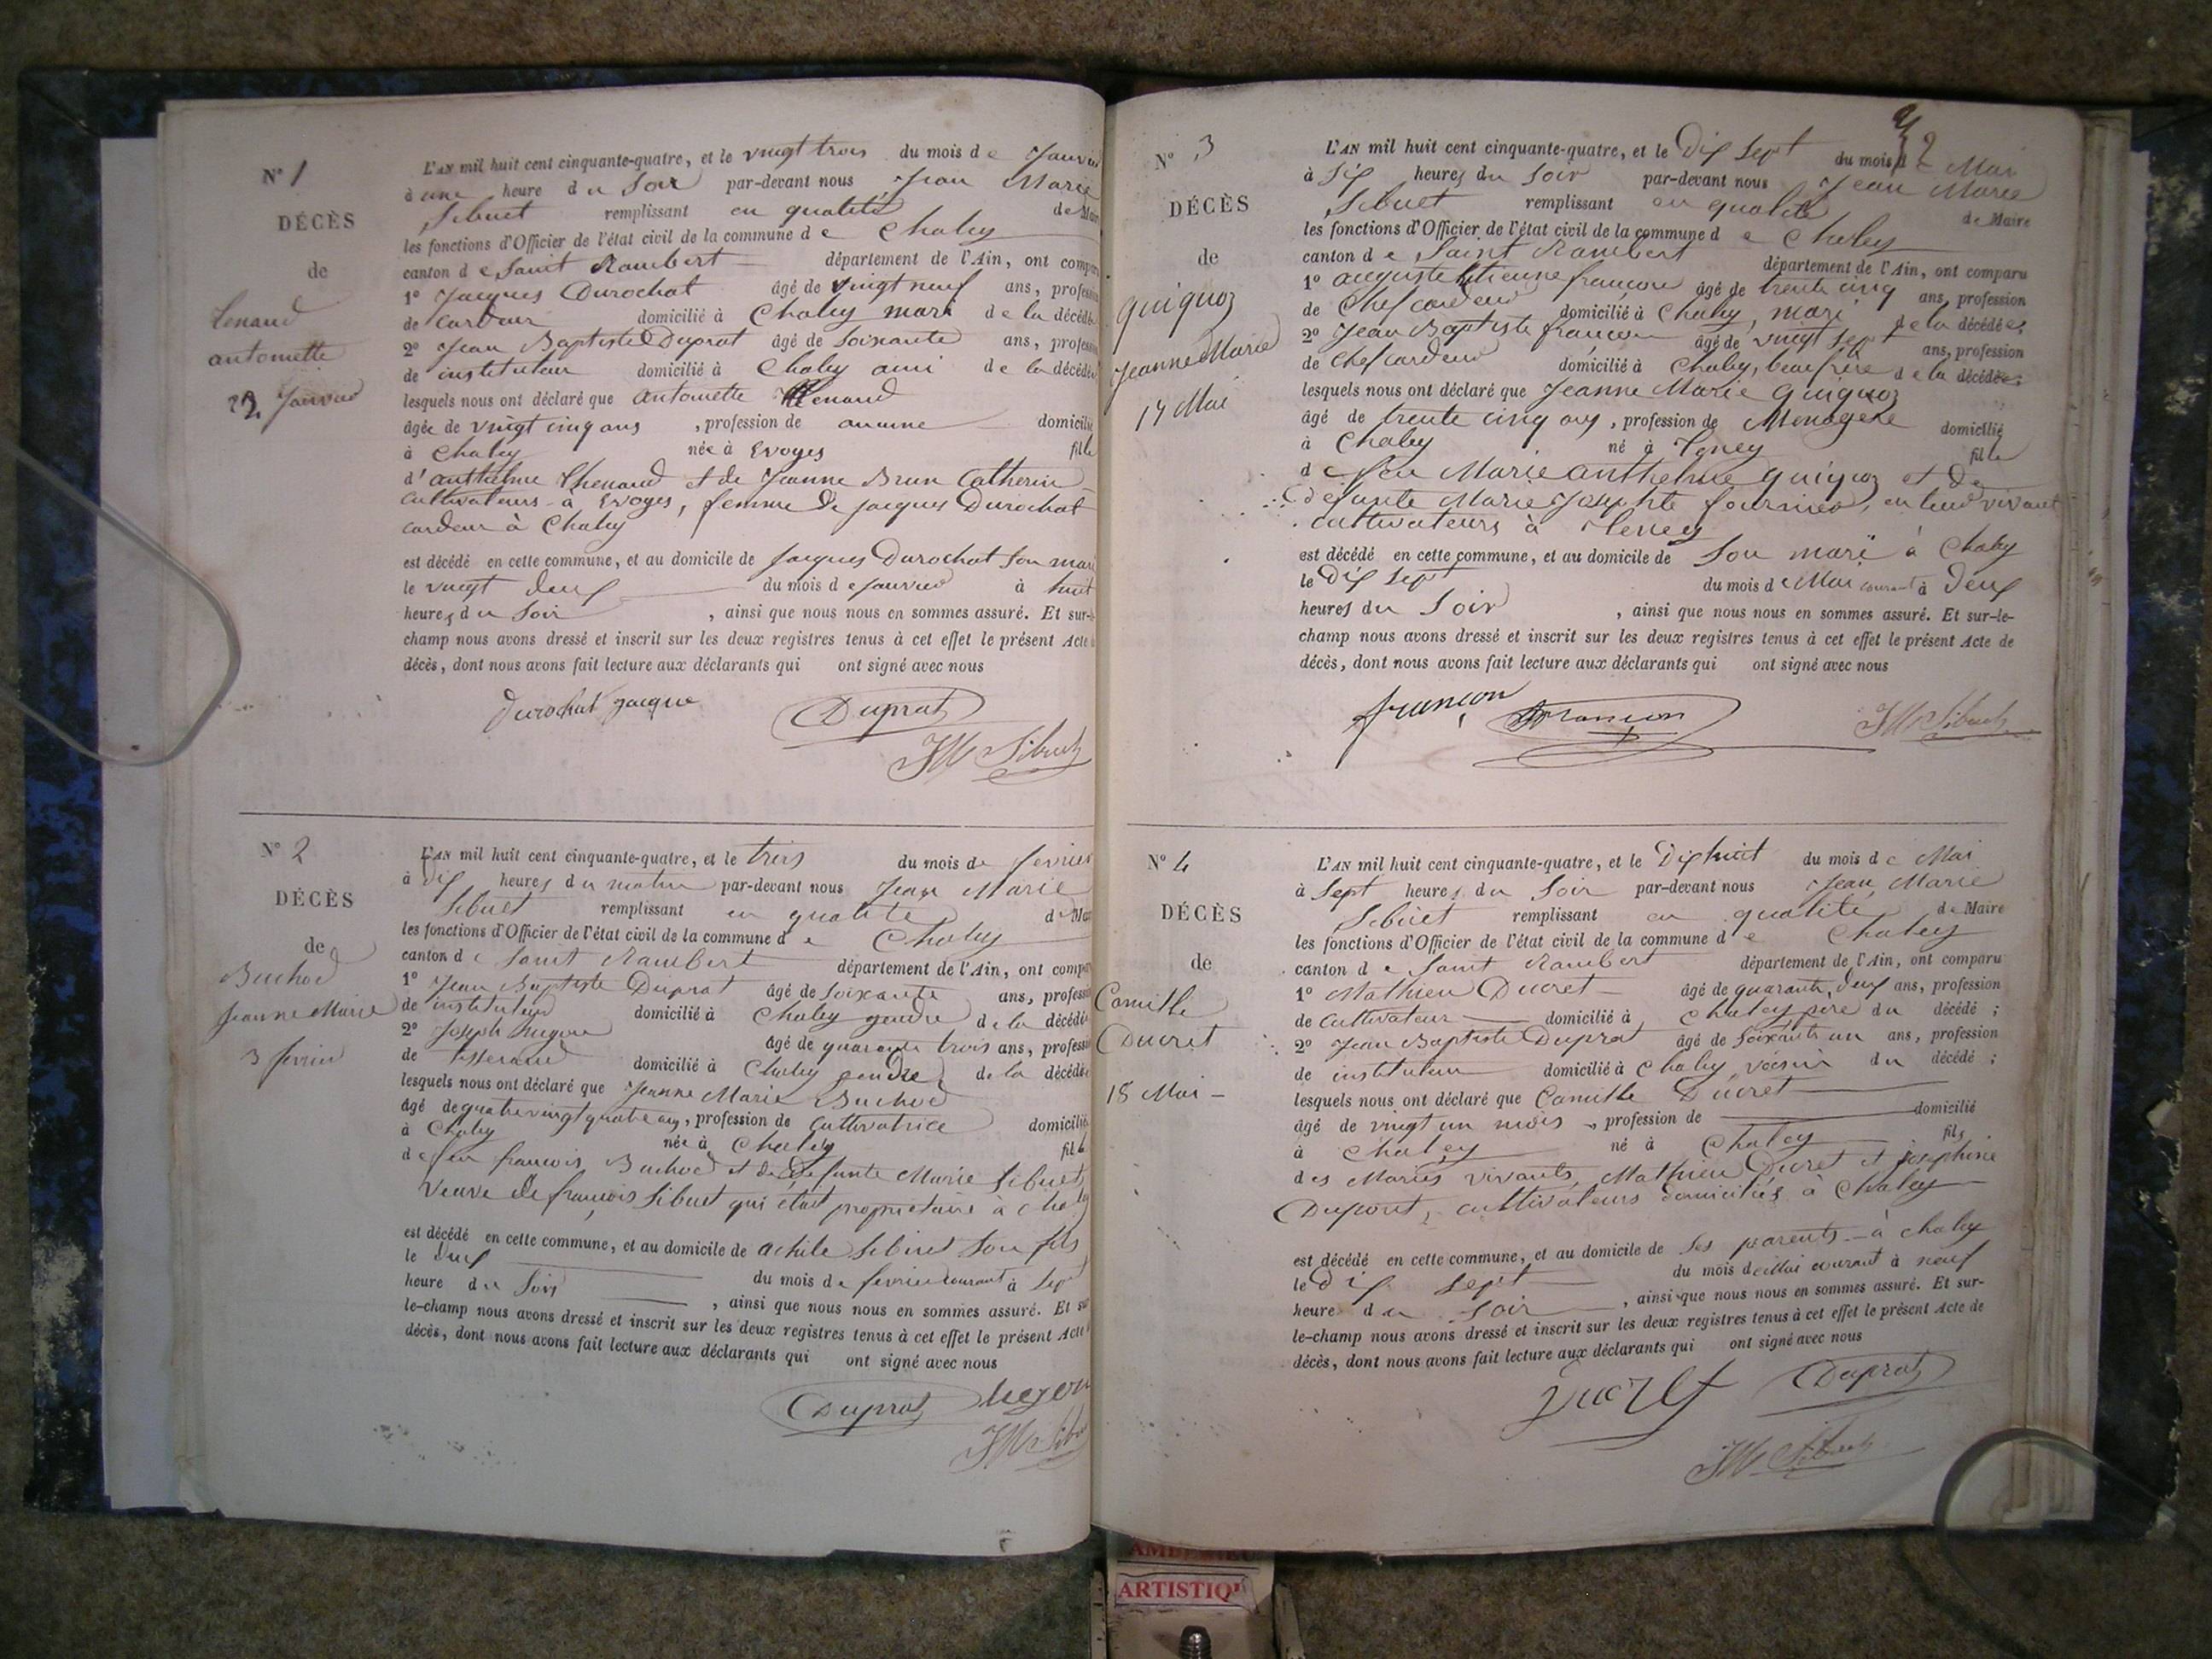 N° 1
DÉCÈS
de
Lenaud
antoinette
22 Janvier
L'AN mil huit cent cinquante-quatre, et le vingt trois du mois de Janvier
à une heure du Soir par-devant nous Jean Marie
Sibuet remplissant en qualité de Maire
les fonctions d'Officier de l'état civil de la commune de Chaley
canton de Saint Rambert département de l'Ain, ont comparu
1° Jacques Durochat âgé de vingt neuf ans, profession
de cardeur domicilié à Chaley mari de la décédée
2° Jean Baptiste Duprat âgé de Soixante ans, profession
de instituteur domicilié à Chaley ami de la décédée
lesquels nous ont déclaré que antoinette Thenaud
âgée de vingt cinq ans, profession de aucune domicilié
à Chaley née à Evoges fille
d'anthelme Thenaud et de Jeanne Brun Catherin
cultivateurs à Evoges, femme de Jacques Durochat
cardeur à Chaley
est décédé en cette commune, et au domicile de Jacques Durochat son mari
le vingt deux du mois de Janvier à huit
heures du Soir, ainsi que nous nous en sommes assuré. Et sur-le-
champ nous avons dressé et inscrit sur les deux registres tenus à cet effet le présent Acte de
décès, dont nous avons fait lecture aux déclarants qui ont signé avec nous
Durochat Jacque Duprat
JM Sibuet
N° 2
DÉCÈS
de
Buchod
Jeanne Marie
3 fevrier
L'AN mil huit cent cinquante-quatre, et le trois du mois de fevrier
à dix heures du matin par-devant nous Jean Marie
Sibuet remplissant en qualité de Maire
les fonctions d'Officier de l'état civil de la commune de Chaley
canton de Saint Rambert département de l'Ain, ont comparu
1° Jean Baptiste Duprat âgé de Soixante ans, profession
de instituteur domicilié à Chaley gendre de la décédée
2° Joseph Jugon âgé de quarante trois ans, profession
de tisserand domicilié à Chaley gendre de la décédée
lesquels nous ont déclaré que Jeanne Marie Buchod
âgé de quatre vingt quatre ans, profession de Cultivatrice domicilié
à Chaley née à Chaley fille
de feu francois Buchod et de Defunte Marie Sibuet,
veuve de françois Sibuet qui était propriétaire à Chaley
est décédé en cette commune, et au domicile de achile Sibuet Son fils
le deux du mois de fevrier courant à Sept
heure du Soir, ainsi que nous nous en sommes assuré. Et sur-
le-champ nous avons dressé et inscrit sur les deux registres tenus à cet effet le présent Acte
décès, dont nous avons fait lecture aux déclarants qui ont signé avec nous
Duprat
JM Sibuet
2
N° 3
DÉCÈS
de
Guiguoz
Jeanne Marie
17 Mai
L'AN mil huit cent cinquante-quatre, et le Dix Sept du mois de Mai
à Six heures du Soir par-devant nous Jean Marie
Sibuet remplissant en qualité de Maire
les fonctions d'Officier de l'état civil de la commune de Chaley
canton de Saint Rambert département de l'Ain, ont comparu
1° auguste Etienne françon âgé de trente cinq ans, profession
de Chef cardeur domicilié à Chaley, mari de la décédée;
2° Jean Baptiste françon âgé de vingt Sept ans, profession
de Chef cardeur domicilié à Chaley, beau frère de la décédée;
lesquels nous ont déclaré que Jeanne Marie Guiguoz
âgé de trente cinq ans, profession de Menagère domicilié
à Chaley né à Teney fille
de feu Marie anthelme Guiguoz et de
Defunte Marie Josephte fournier, en leur vivant
cultivateurs à Teney
est décédé en cette commune, et au domicile de Son mari à Chaley
le Dix Sept du mois de Mai courant à Deux
heures du Soir, ainsi que nous nous en sommes assuré. Et sur-le-
champ nous avons dressé et inscrit sur les deux registres tenus à cet effet le présent Acte de
décès, dont nous avons fait lecture aux déclarants qui ont signé avec nous
françon françon JM Sibuet
N° 4
DÉCÈS
de
Camille
Ducret
18 Mai
L'AN mil huit cent cinquante-quatre, et le Dix huit du mois de Mai
à Sept heures du Soir par-devant nous Jean Marie
Sibuet remplissant en qualité de Maire
les fonctions d'Officier de l'état civil de la commune de Chaley
canton de Saint Rambert département de l'Ain, ont comparu
1° Mathieu Ducret âgé de quarante deux ans, profession
de Cultivateur domicilié à Chaley père du décédé;
2° Jean Baptiste Duprat âgé de Soixante un ans, profession
de instituteur domicilié à Chaley voisin du décédé;
lesquels nous ont déclaré que Camille Ducret
âgé de vingt un mois, profession de domicilié
à Chaley né à Chaley fils
des Mariés vivants, Mathieu Ducret et Josephine
Dupont, cultivateurs domiciliés à Chaley
est décédé en cette commune, et au domicile de Ses parents à Chaley
le Dix Sept du mois de Mai courant à neuf
heure du Soir, ainsi que nous nous en sommes assuré. Et sur-
le-champ nous avons dressé et inscrit sur les deux registres tenus à cet effet le présent Acte de
décès, dont nous avons fait lecture aux déclarants qui ont signé avec nous
Ducret Duprat
JM Sibuet
ARTISTIQU